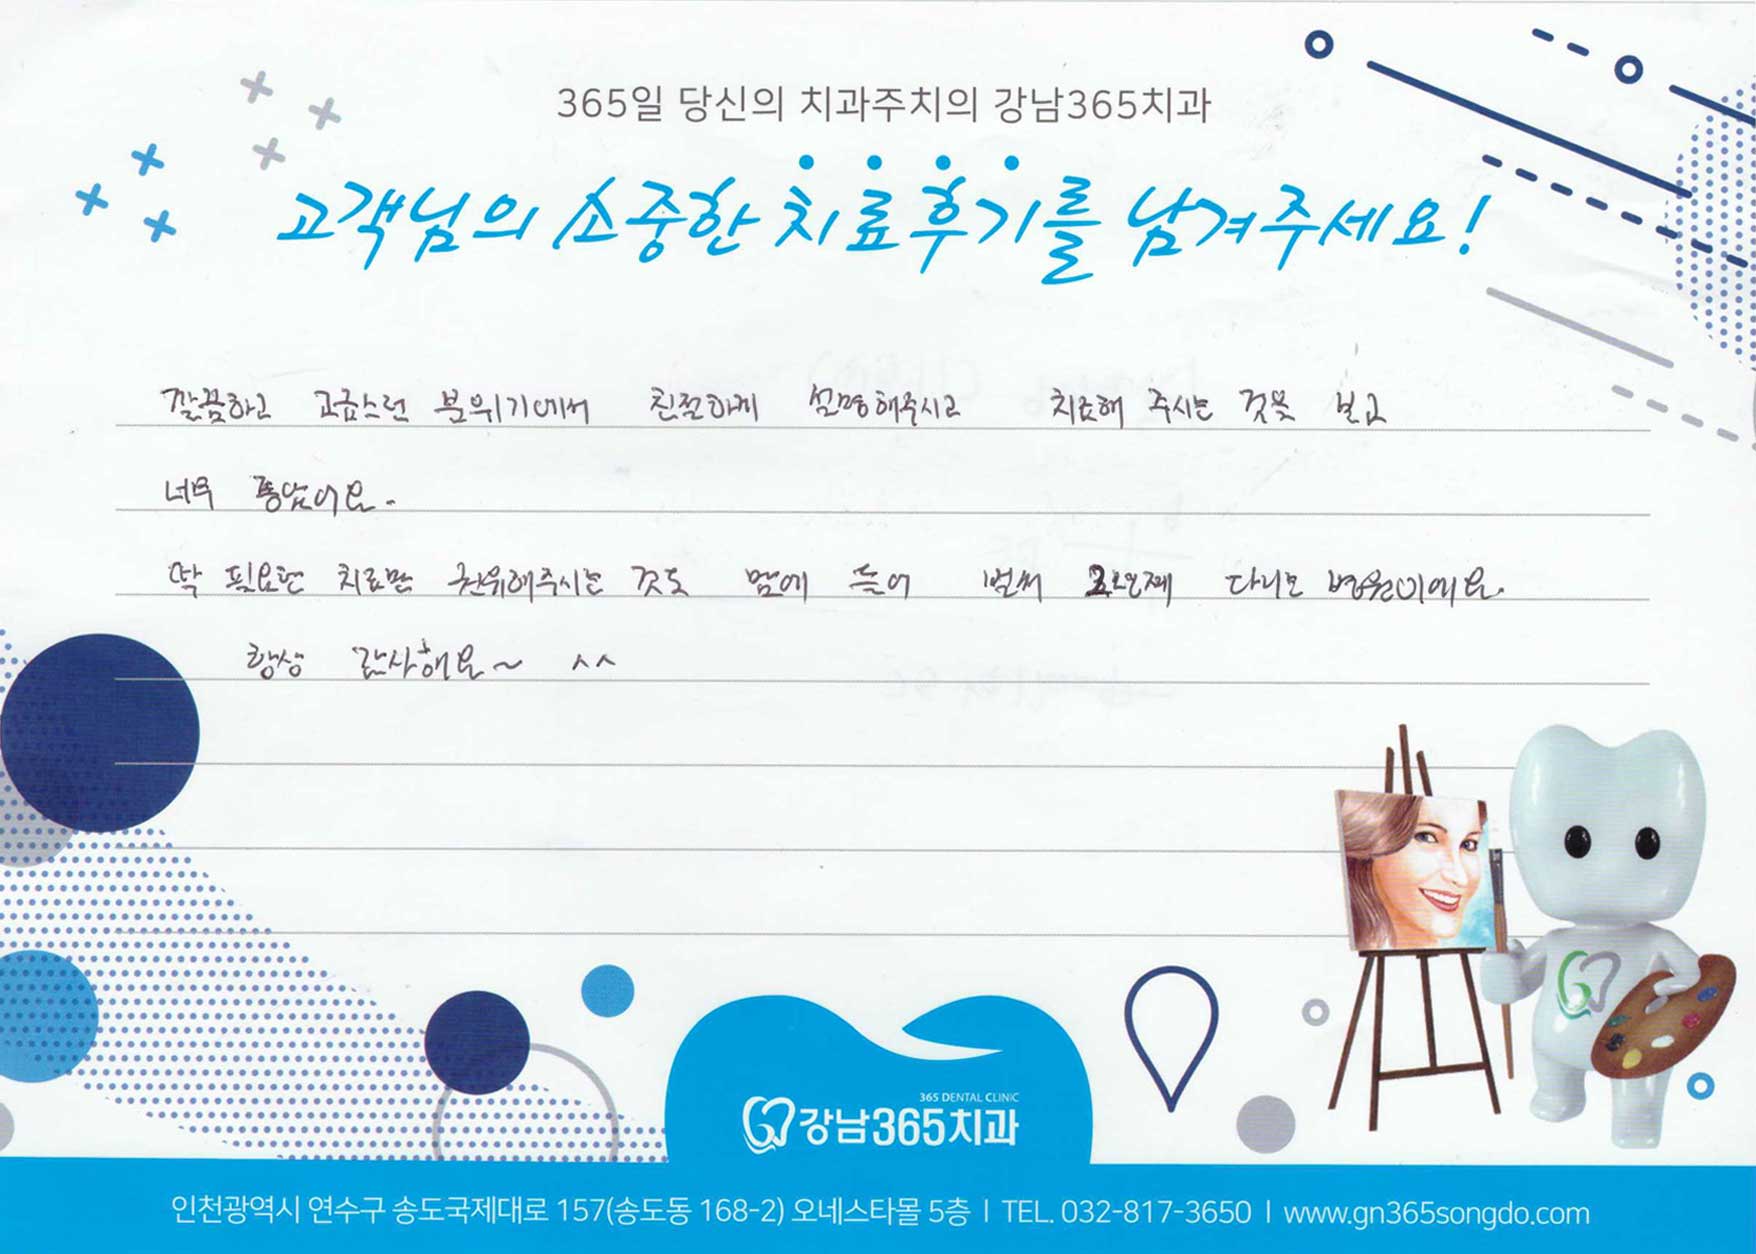 365일 당신의 치과주치의 강남365치과
고객님의 소중한 치료후기를 남겨주세요!
깔끔하고 고급스런 분위기에서 친절하게 설명해주시고 치료해 주시는 것을 보고
너무 좋았어요.
딱 필요한 치료만 권유해주시는 것도 맘에 들어 벌써 년째 다니는 병원이에요.
항상 감사해요~ ^^
365 DENTAL CLINIC
강남365치과
인천광역시 연수구 송도국제대로 157(송도동 168-2) 오네스타몰 5층 I TEL. 032-817-3650 I www.gn365songdo.com